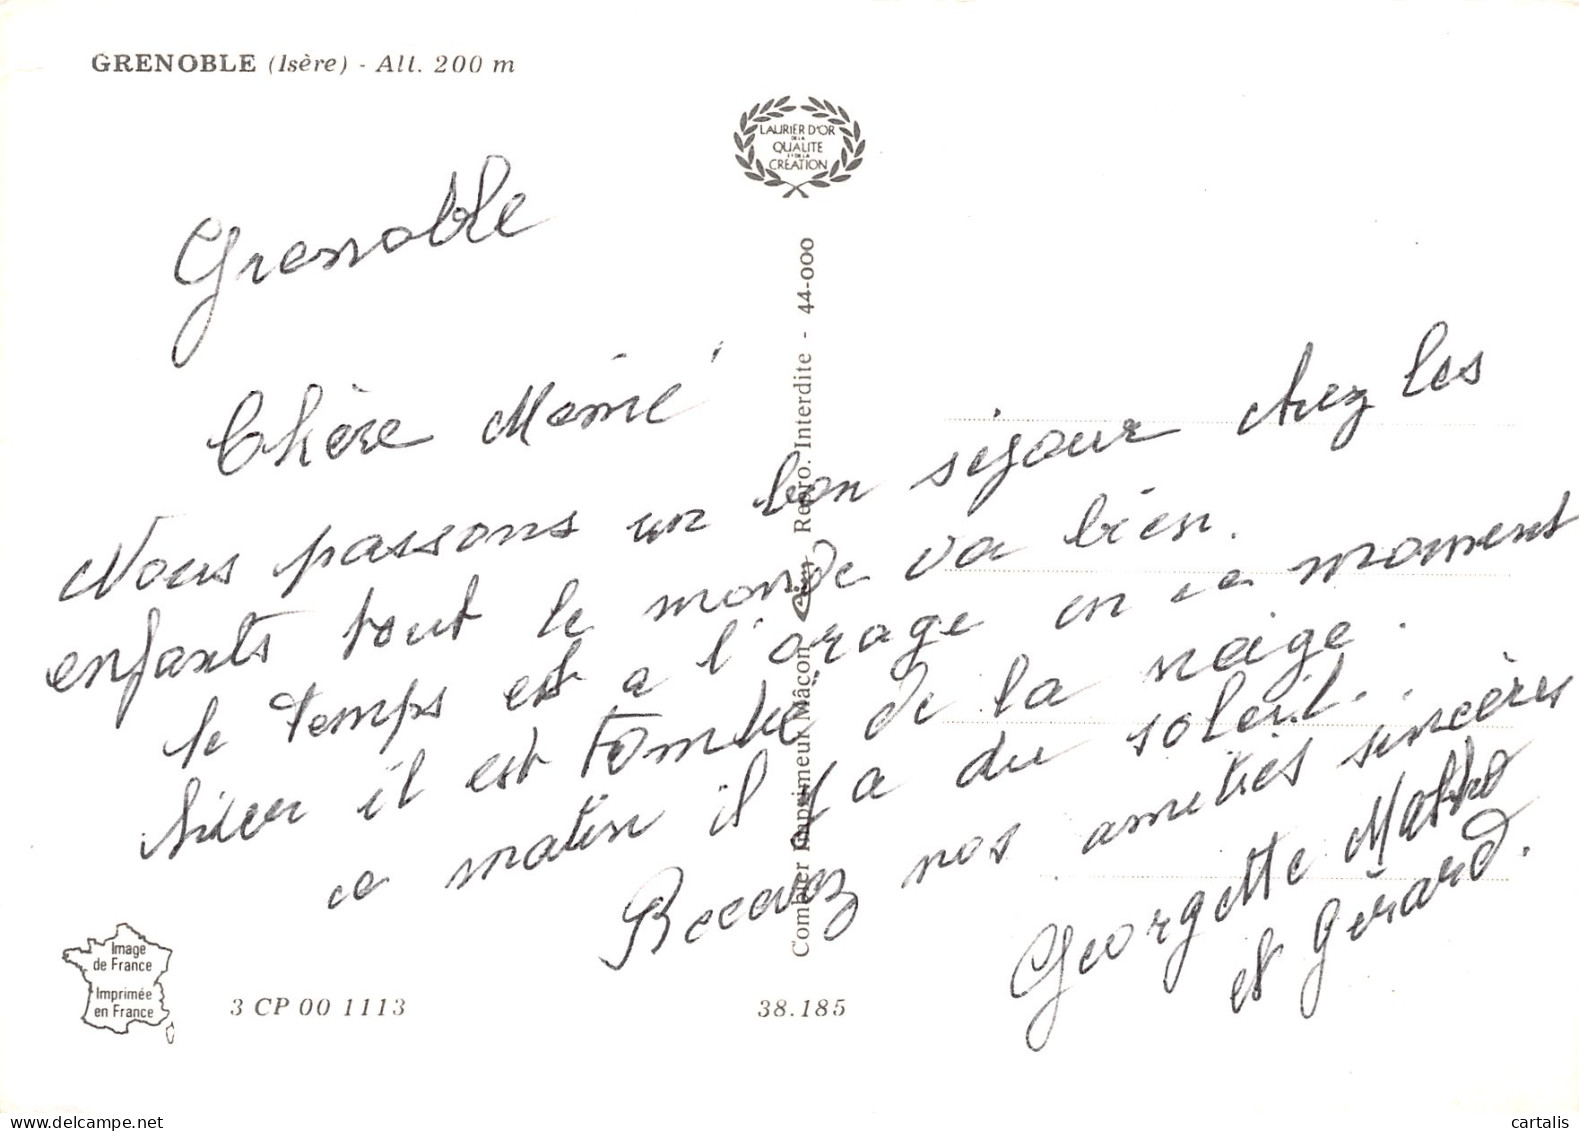 GRENOBLE (Isère) - Alt. 200 m
LAURIER D'OR
DE LA
QUALITE
ET DE LA
CREATION
Grenoble
Chère Mémé
Nous passons un bon séjour chez les
enfants tout le monde va bien.
le temps est a l'orage en ce moment
hier il est tombé de la neige.
ce matin il y a du soleil.
Recevez nos amitiés sincères
Georgette
et Gérard.
Combier Imprimeur Mâcon Cim Repro. Interdite - 44-000
Image
de France
Imprimée
en France
3 CP 00 1113
38.185
delcampe.net
cartalis